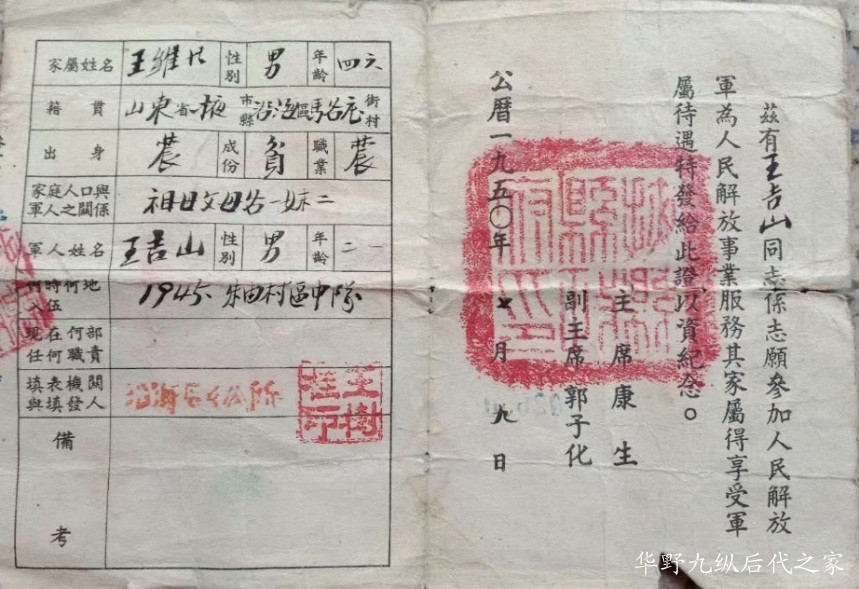 家屬姓名 王維 性別 男 年齡 四六
籍貫 山東省掖市縣沿海區馬谷庄街村
出身 農 成份 貧 職業 農
家庭人口與軍人之關係 祖母父母各一妹二
軍人姓名 王吉山 性別 男 年齡 二一
何時何地入伍 1945. 朱由村區中隊
現在何部任何職責
填表機關與填發人 沿海區公所 王樹桂印
備考
茲有王吉山同志係志願參加人民解放
軍為人民解放事業服務其家屬得享受軍
屬待遇特發給此證以資紀念。
主席康生
副主席郭子化
公曆一九五〇年 月九日
掖縣 府印
华野九纵后代之家